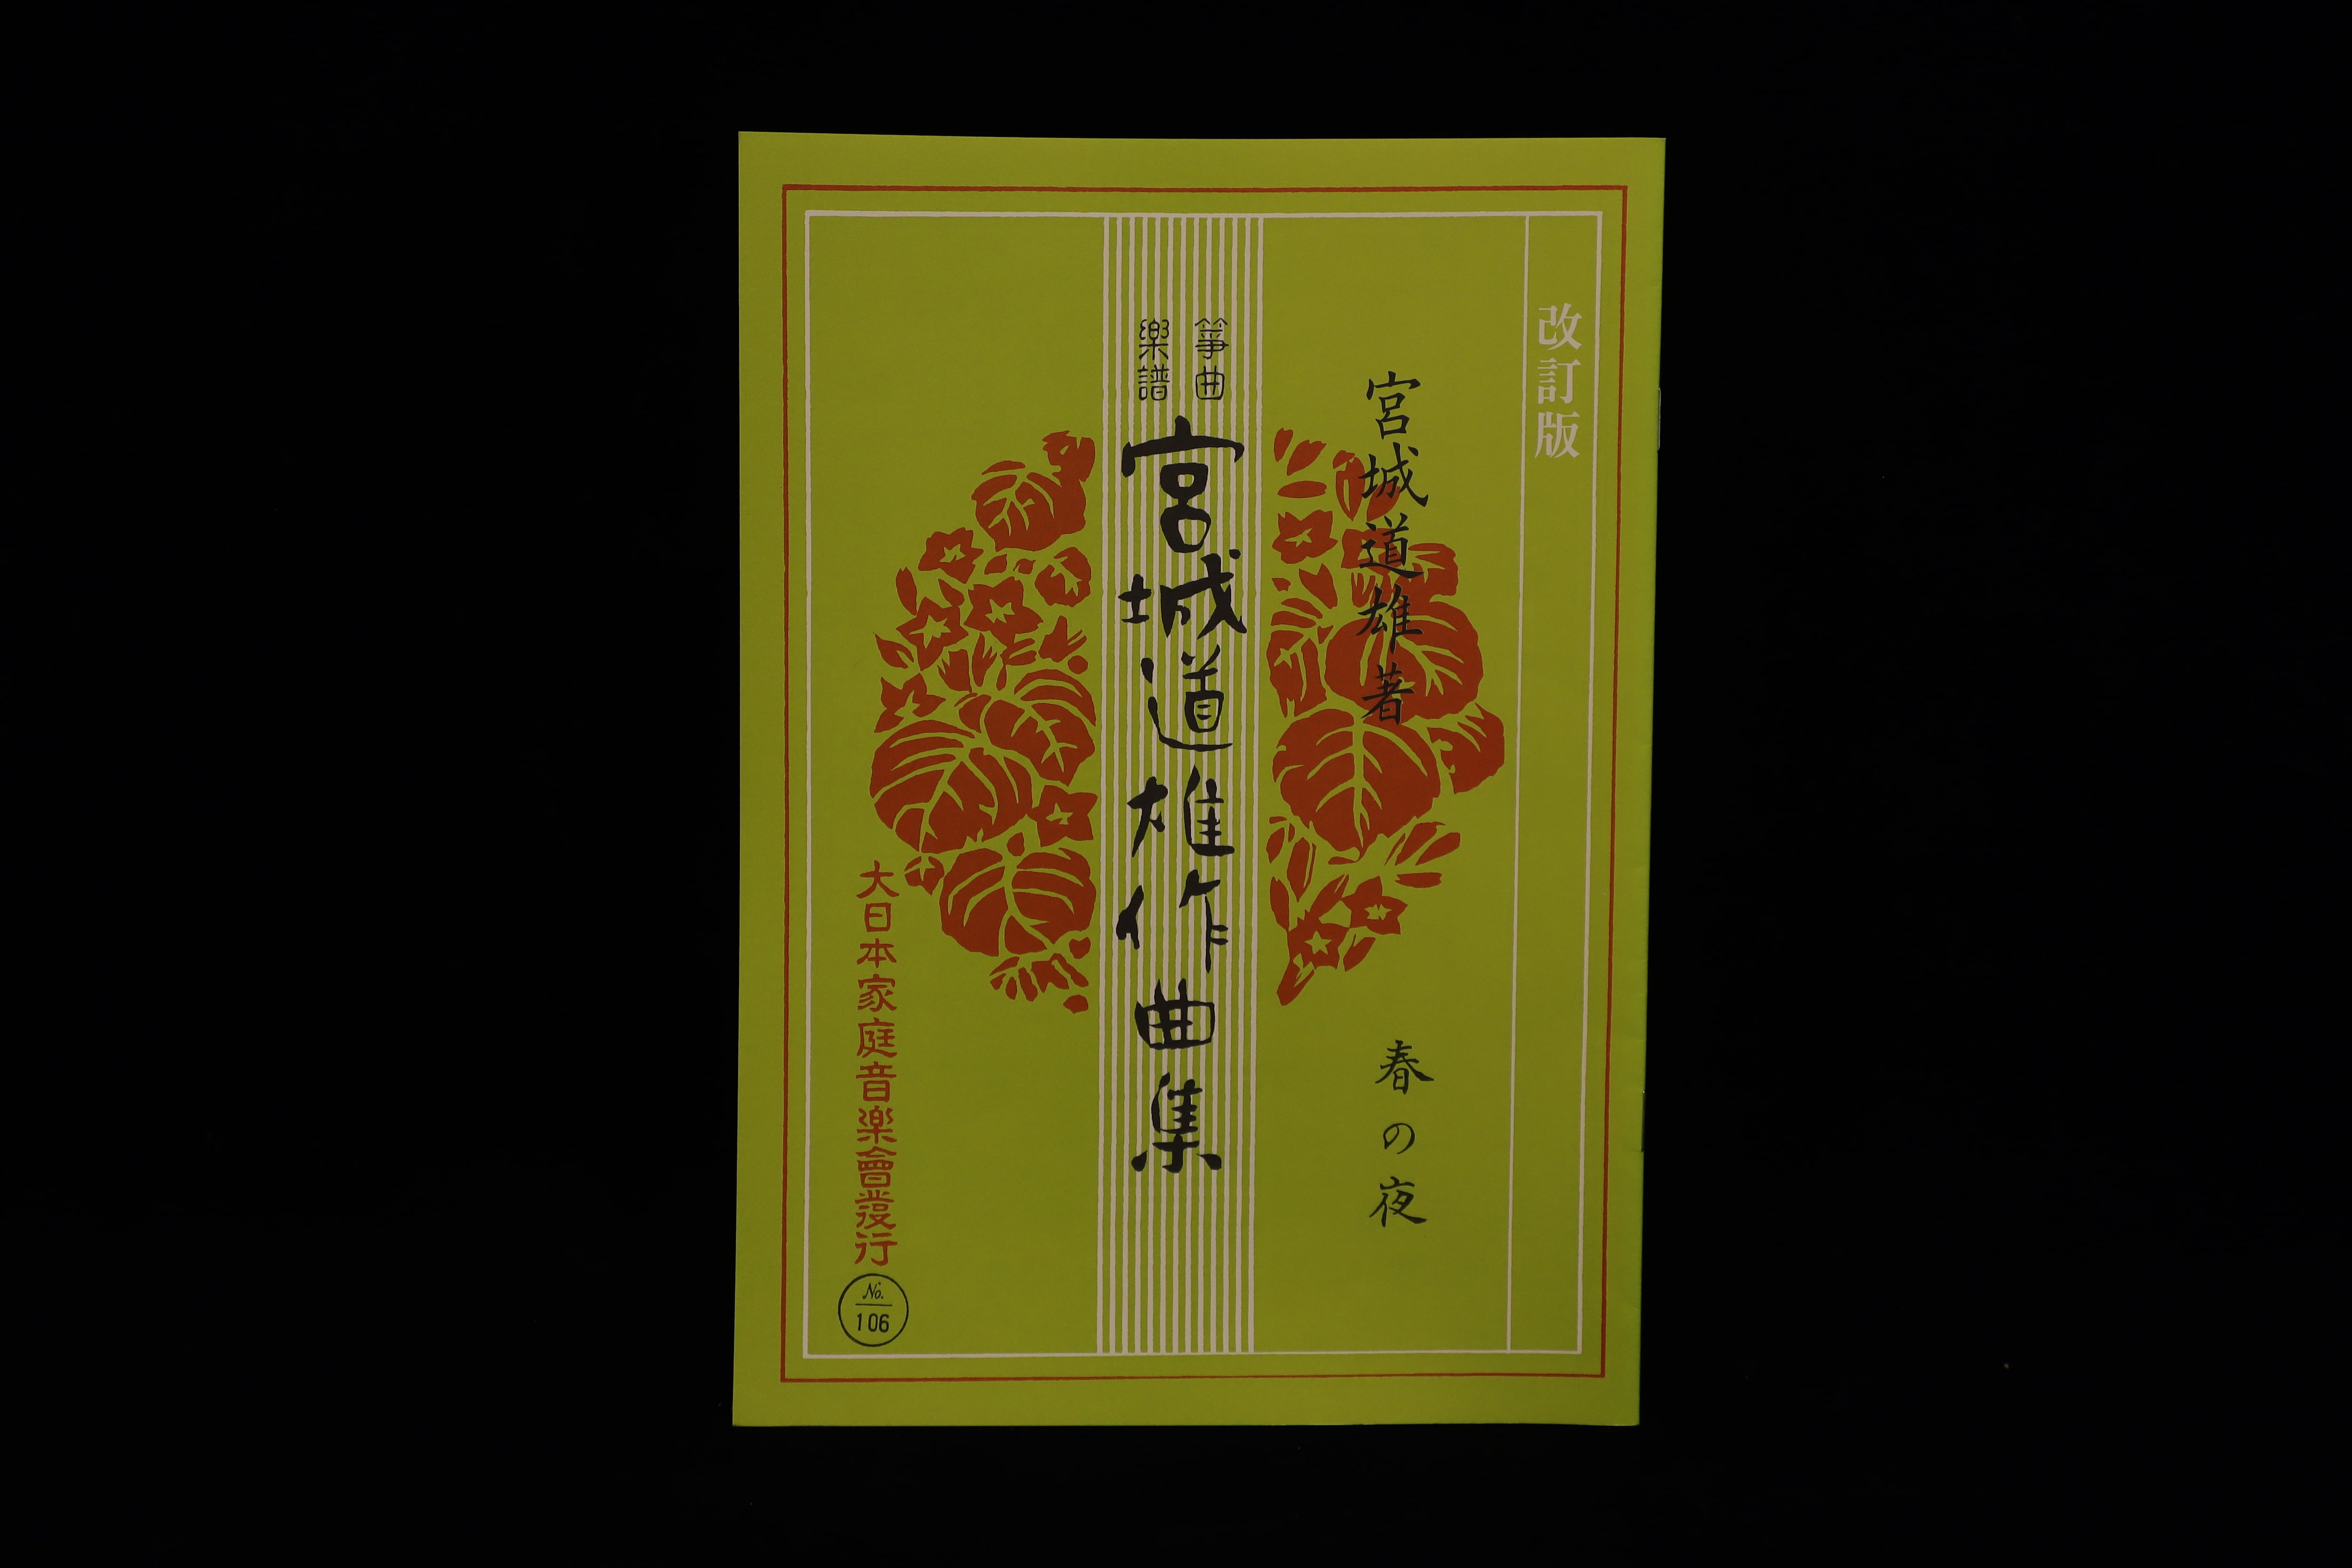 改訂版
宮城道雄著
春の夜
箏曲
楽譜
宮城道雄作曲集
大日本家庭音楽會發行
No.
106